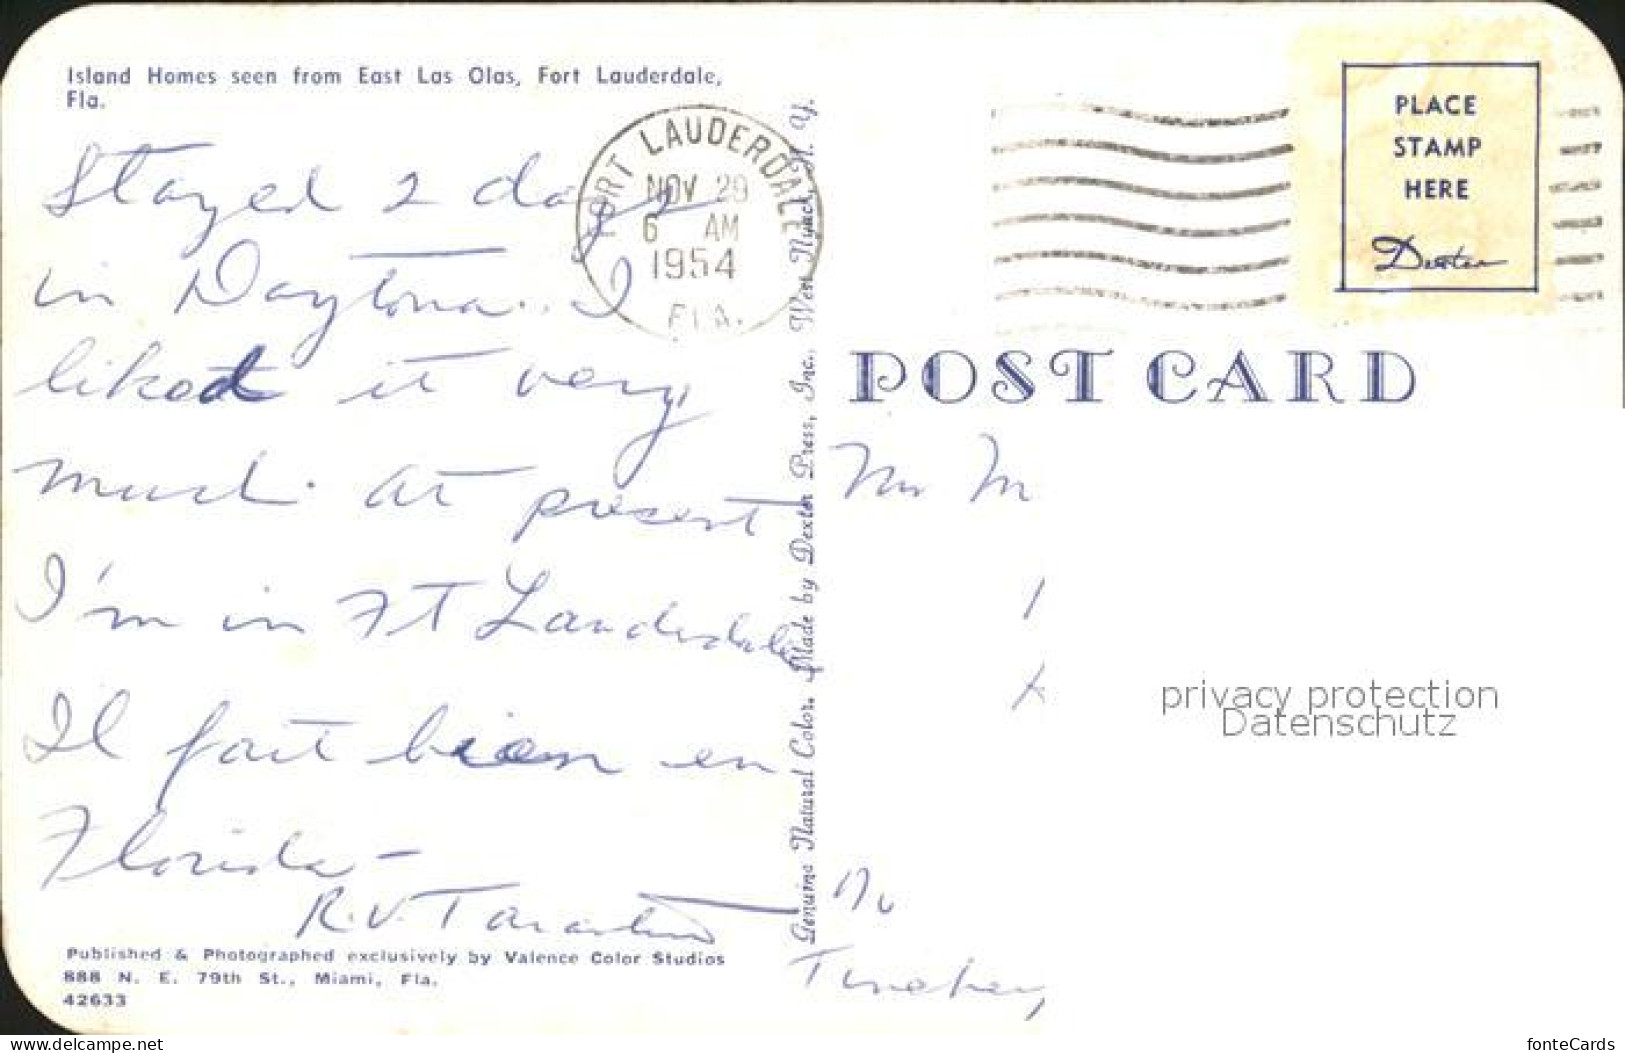 Island Homes seen from East Las Olas, Fort Lauderdale,
Fla.
Stayed 2 days
in Daytona. I
liked it very
much. at present
I'm in Ft Lauderdale
Il fait bien en
Florida —
R.V.
Published & Photographed exclusively by Valence Color Studios
888 N. E. 79th St., Miami, Fla.
42633
FORT LAUDERDALE
NOV 29
6 AM
1954
FLA.
Genuine Natural Color. Made by Dexter Press, Inc., West Nyack, N. Y.
PLACE
STAMP
HERE
Dexter
POST CARD
M
privacy protection
Datenschutz
www.delcampe.net
fonteCards